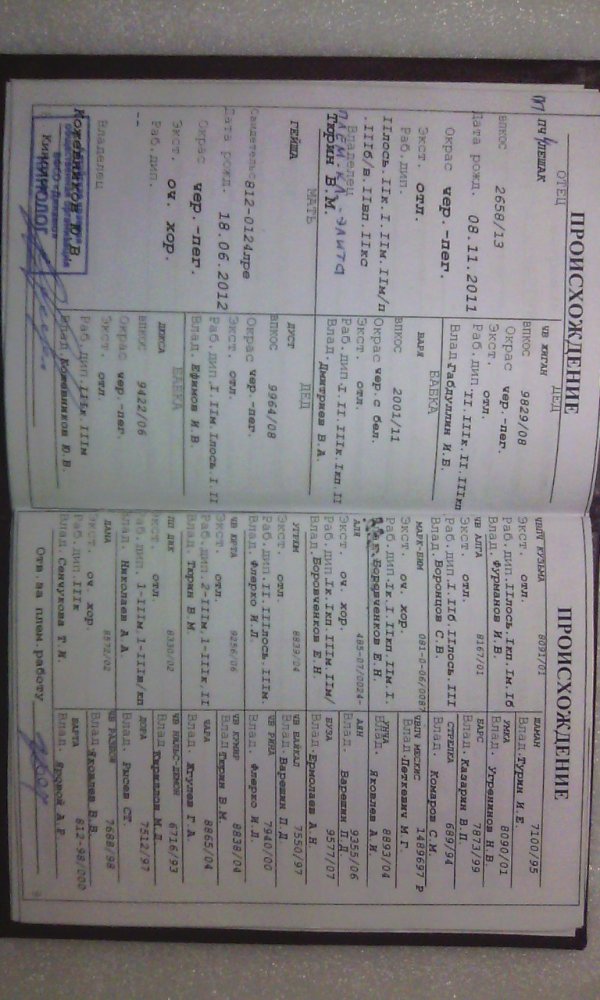 ПРОИСХОЖДЕНИЕ
ОТЕЦ
ПЧ ЛЕШАК
ВПКОС 2658/13
Дата рожд. 08.11.2011
Окрас чер.-пег.
Экст. отл.
Раб.дип.
IIлось.IIк.I.IIм.IIм/п
.IIIб/в.IIвп.IIкс
Владелец
ПЛЕМ.КЛ.-ЭЛИТА
Тюрин В.М.
МАТЬ
ГЕЙША
Свидетельс 812-0124лре
Дата рожд. 18.06.2012
Окрас чер.-пег.
Экст. оч. хор.
Раб.дип.
--
Владелец
Кожевников Ю.В
Кинолог
ДЕД
ЧВ ЖИГАН
ВПКОС 9829/08
Окрас чер.-пег.
Экст. отл.
Раб.дип.II.IIIк.II.IIIкп
Влад.Габдуллин И.Б.
БАБКА
ВАРЯ
ВПКОС 2001/11
Окрас чер.с бел.
Экст. отл.
Раб.дип.I.II.IIIк.Iкп.II
Влад. Дмитриев В.А.
ДЕД
ДУСТ
ВПКОС 9964/08
Окрас чер.-пег.
Экст. отл.
Раб.дип.I.IIм.Iлось.I.II
Влад. Ефимов И.В.
БАБКА
ДЕКСА
ВПКОС 9422/06
Окрас чер.-пег.
Экст. отл.
Раб.дип.IIIк IIIм
Влад.Кожевников Ю.В.
ПРОИСХОЖДЕНИЕ
КУЗЬМА 8091/01
Экст. отл.
Раб.дип.IIлось.Iкп.Iм.Iб
Влад. Фурманов И.В.
ЧВ АЛГА 8167/01
Экст. отл.
Раб.дип.I.IIб.IIлось.III
Влад. Воронцов С.В.
МАРК-БИМ 081-0-06/0087
Экст. оч. хор.
Раб.дип.Iк.I.IIкп.IIм.I.
Влад.Боровченков Е.Н.
АЛЯ 485-07/0024-
Экст. оч. хор.
Раб.дип.Iк.Iкп.IIIм.IIм/
Влад.Боровченков Е.Н.
УГРЮМ 8839/04
Экст. отл.
Раб.дип.II.IIIлось.IIIм.
Влад. Флерко И.Л.
ЧВ ЮРТА 9256/06
Экст. отл.
Раб.дип.2-IIIм,1-IIIк,II
Влад. Тюрин В М
ПП ДИК 8330/02
Экст отл
Раб.дип. 1-IIIм,1-IIIв/кп
Влад. Николаев А А
ДАНА 8872/02
Экст. оч. хор.
Раб.дип.IIIк
Влад. Сенчукова Т.И.
Отв.за плем.работу
ШАМАН 7100/95
Влад.Турин И Е.
УМКА 8090/01
Влад. Угренинов Н.В.
БАРС 7873/99
Влад. Казарин В.П.
СТРЕЛКА 689/94
Влад. Комаров С.М.
МЕСКИС 1489697 Р
Влад.Петкевич М.Г.
УМКА 8893/04
Влад. Яковлев А.И.
АЯН 9355/06
Влад. Варешин П.Д.
БУЗА 9577/07
Влад.Ермолаев А.Н.
ЧВ БАЙКАЛ 7550/97
Влад. Варешин П.Д.
ЧВ РИНА 7940/00
Влад. Флерко И.Л.
ЧВ КУМИР 8838/04
Влад.Тюрин В.М.
ЧАРА 8865/04
Влад. Ягулев Г А.
ЧВ НИЛЬС-ДЕМОН 6716/93
Влад.Кириллов М.Л.
ДОРА 7512/97
Влад. Рысев СТ
ЧВ РАЗБОЙ 7688/98
Влад.Яковлев В.В.
ВАРТА 812-98/000
Влад. Яковой А.Р.